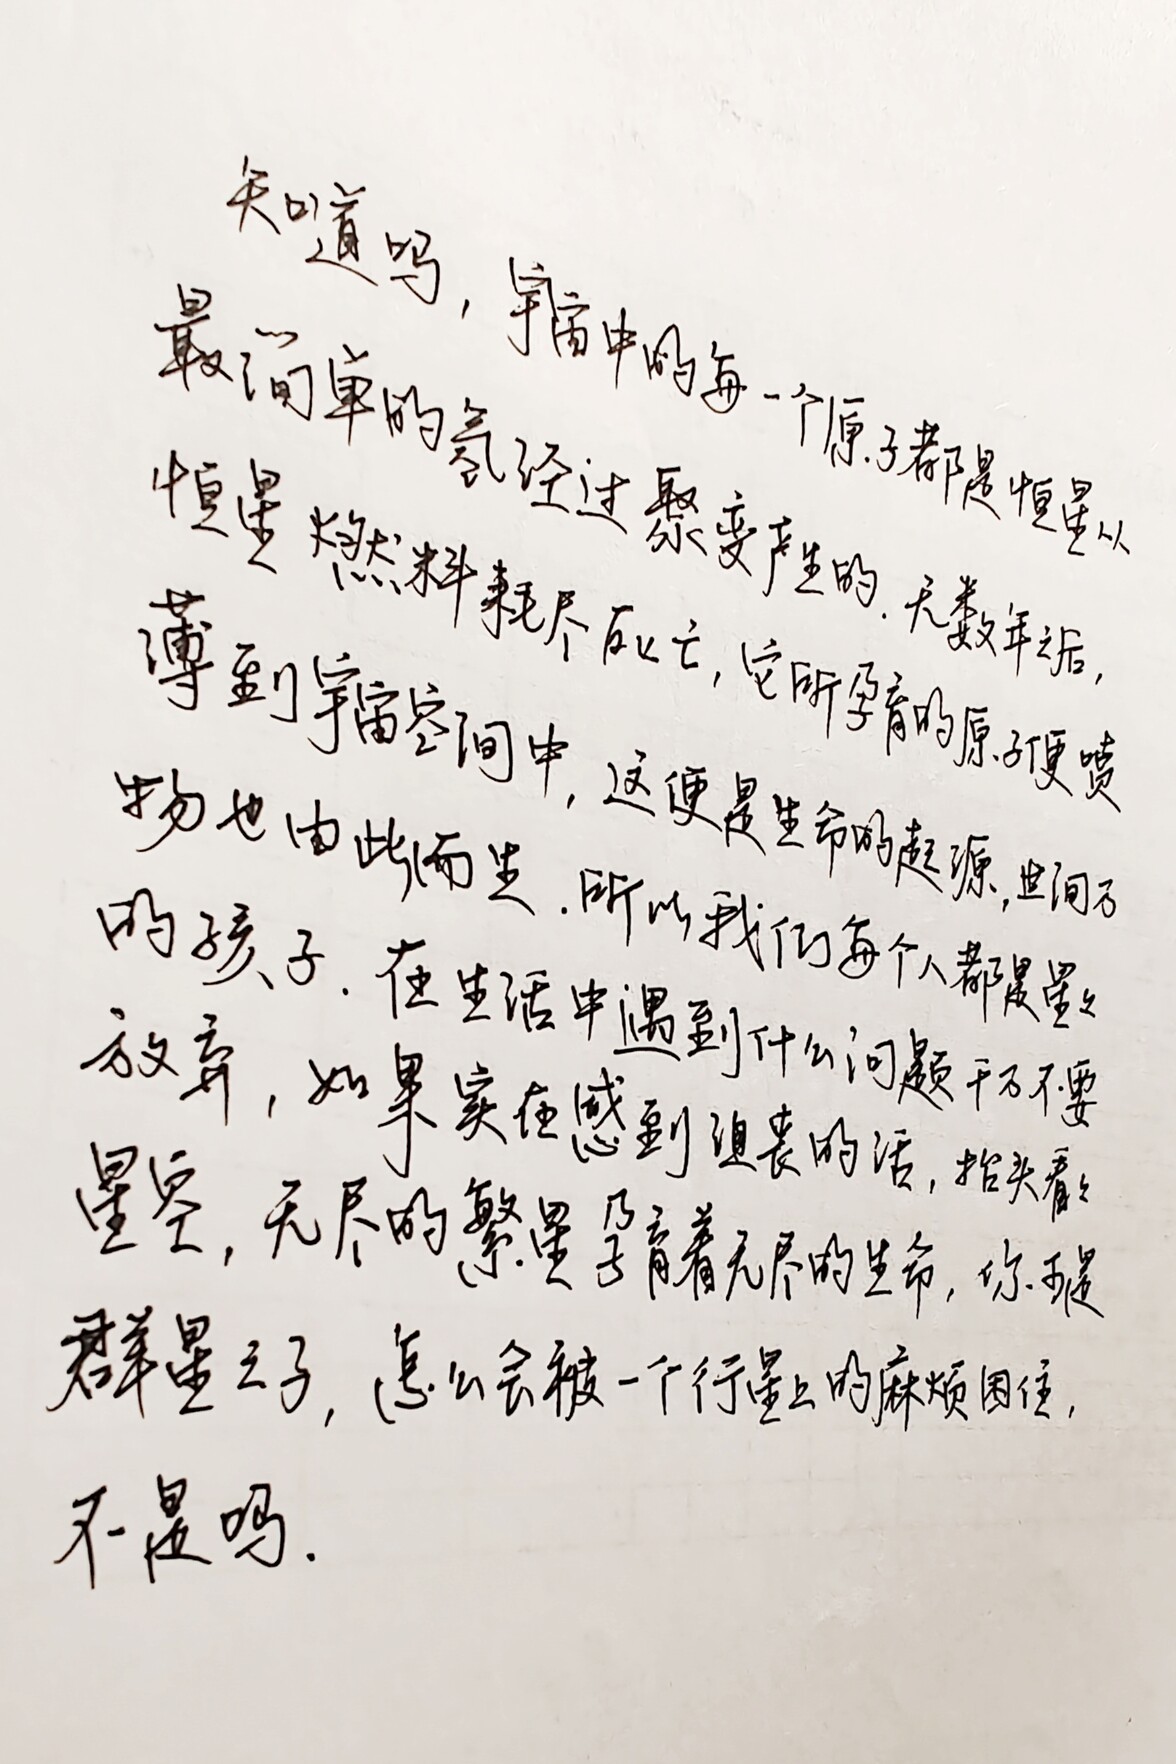 知道吗，宇宙中的每一个原子都是恒星从
最简单的氢经过聚变产生的．无数年之后，
恒星燃料耗尽死亡，它所孕育的原子便喷
薄到宇宙空间中，这便是生命的起源，世间万
物也由此而生．所以我们每个人都是星星
的孩子．在生活中遇到什么问题千万不要
放弃，如果实在感到沮丧的话，抬头看看
星空，无尽的繁星孕育着无尽的生命，你可是
群星之子，怎么会被一个行星上的麻烦困住，
不是吗．